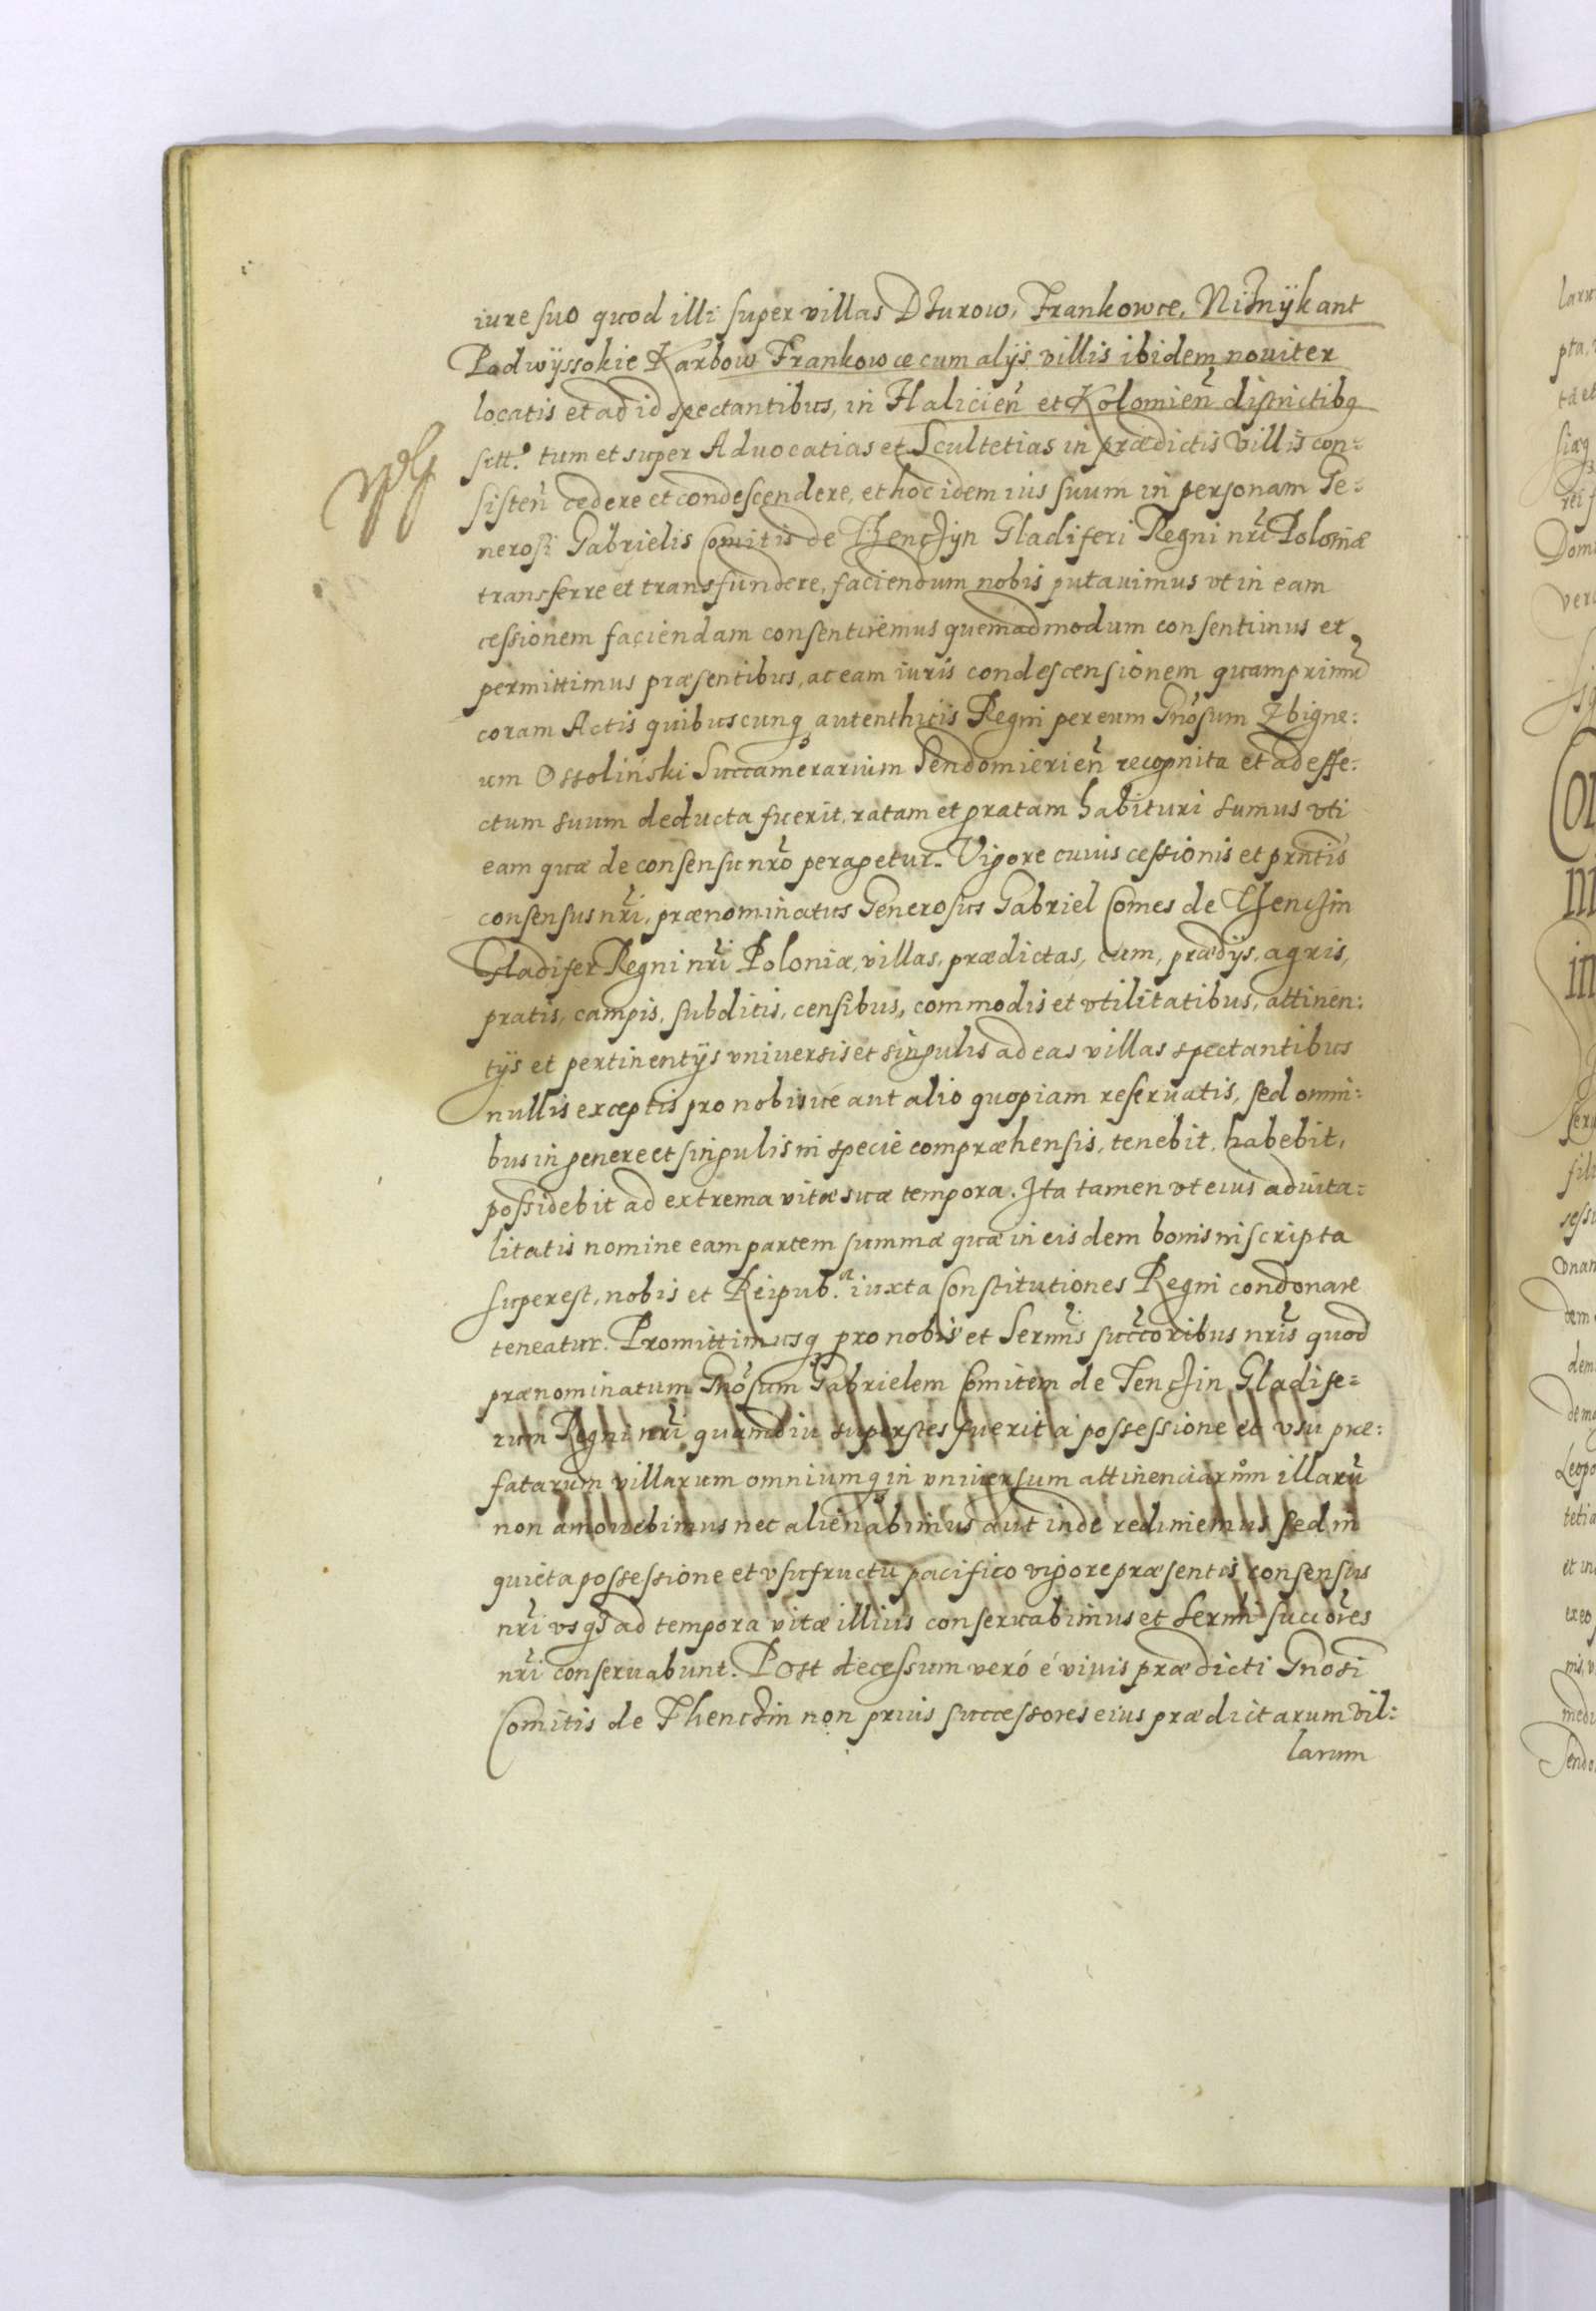 iure suo quod illi super villas Dżurow, Frankowce, Niżnÿkant
Podwÿssokie Karbow Frankowce cum alijs villis ibidem nouiter
locatis et ad id spectantibus, in Halicień et Kolomień districtibq
sitt.º tum et super Aduocatias et Scultetias in prædictis Villis con:
sisteñ cedere et condescendere, et hoc idem ius suum in personam Ge:
nerosi Gabrielis Comitis de Thenczÿn Gladiferi Regni nr̃i Poloniæ
transferre et transfundere, faciendum nobis putauimus vt in eam
cessionem faciendam consentiremus quemadmodum consentimus et
permittimus præsentibus, ac eam iuris condescensionem quamprimũ
coram Actis quibuscunq autenthicis Regni per eum Gnõsum Zbigne:
um Ossoliński Succamerarium Sendomierień recognita et ad effe:
ctum suum deducta fuerit, ratam et gratam habituri sumus vti
eam quæ de consensu nr̃o peragetur. Vigore cuius cessionis et prñtis
consensus nr̃i, prænominatus Generosus Gabriel Comes de Thenczin
Gladifer Regni nr̃i Poloniæ, villas, prædictas, cum, prædijs, agris,
pratis, campis, subditis, censibus, commodis et vtilitatibus, attinen:
tijs et pertinentijs vniuersis et singulis ad eas villas spectantibus
nullis exceptis pro nobisué aut alio quopiam reseruatis, sed omni:
bus in genere et singulis in specie compræhensis, tenebit, habebit,
possidebit ad extrema vitæ suæ tempora. Ita tamen vt eius aduita:
litatis nomine eam partem summæ quæ in eisdem bonis inscripta
superest, nobis et Reipub.ᵃ iuxta Constitutiones Regni condonare
teneatur. Promittimusq pro nobis et Sermis̃ succõribus nr̃is quod
prænominatum Gnõsum Gabrielem Comitem de Tenczin Gladife=
rum Regni nr̃i quamdiu superstes fuerit á possessione et vsu præ:
fatarum villarum omniumq in vniuersum attinenciarum illarũ
non amouebimus nec alienabimus aut inde redimemus sed in
quieta possessione et vsufructu pacifico vigore præsentis consensus
nr̃i vsq ad tempora vitæ illius conseruabimus et Sermi̇̃ succõres
nr̃i conseruabunt. Post decessum veró é viuis prædicti Gnõsi
Comitis de Thenczin non prius successores eius prædictarum Vil:
larum